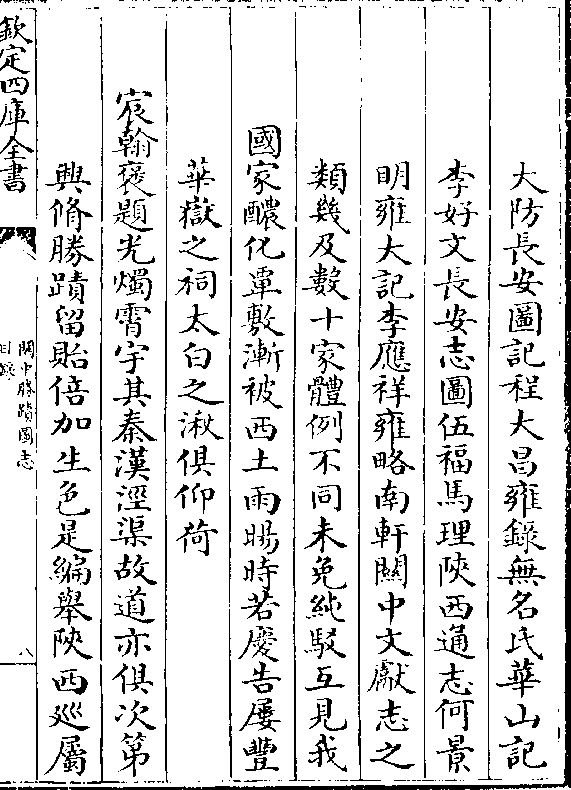 大防長安圖記程大昌雍錄無名氏華山記
李好文長安志圖伍福馬理陜西通志何景
明雍大記李應祥雍略南軒關中文獻志之
類幾及數十家體例不同未免純駁互見我
國家醲化覃敷漸被西土雨暘時若慶告屢豐
華嶽之祠太白之湫俱仰荷
宸翰褒題光燭霄宇其秦漢涇渠故道亦俱次第
興脩勝蹟留貽倍加生色是編舉陜西廵屬
欽定四庫全書
關中勝蹟圖志
目錄
八